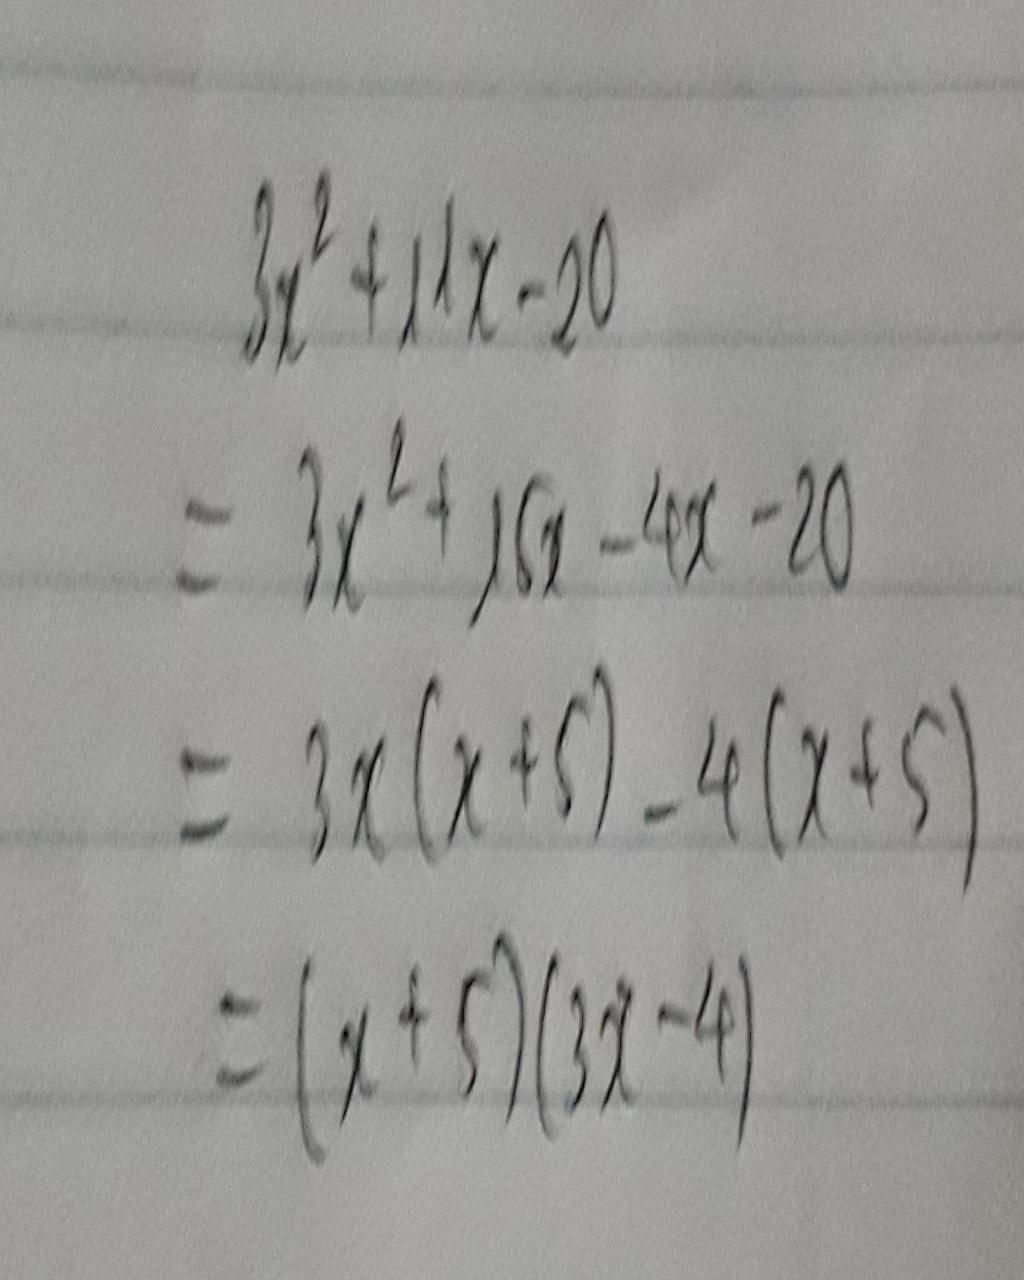 3x² + 11x - 20
= 3x² + 15x - 4x - 20
= 3x(x + 5) - 4(x + 5)
= (x + 5)(3x - 4)